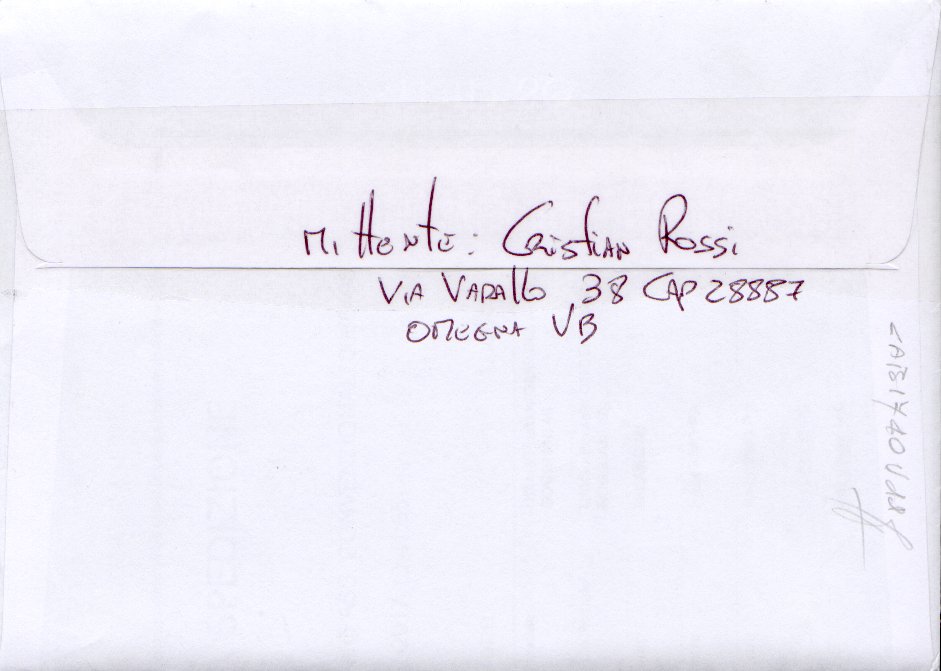 Mittente: Cristian Rossi
Via Varallo 38 CAP 28887
Omegna VB